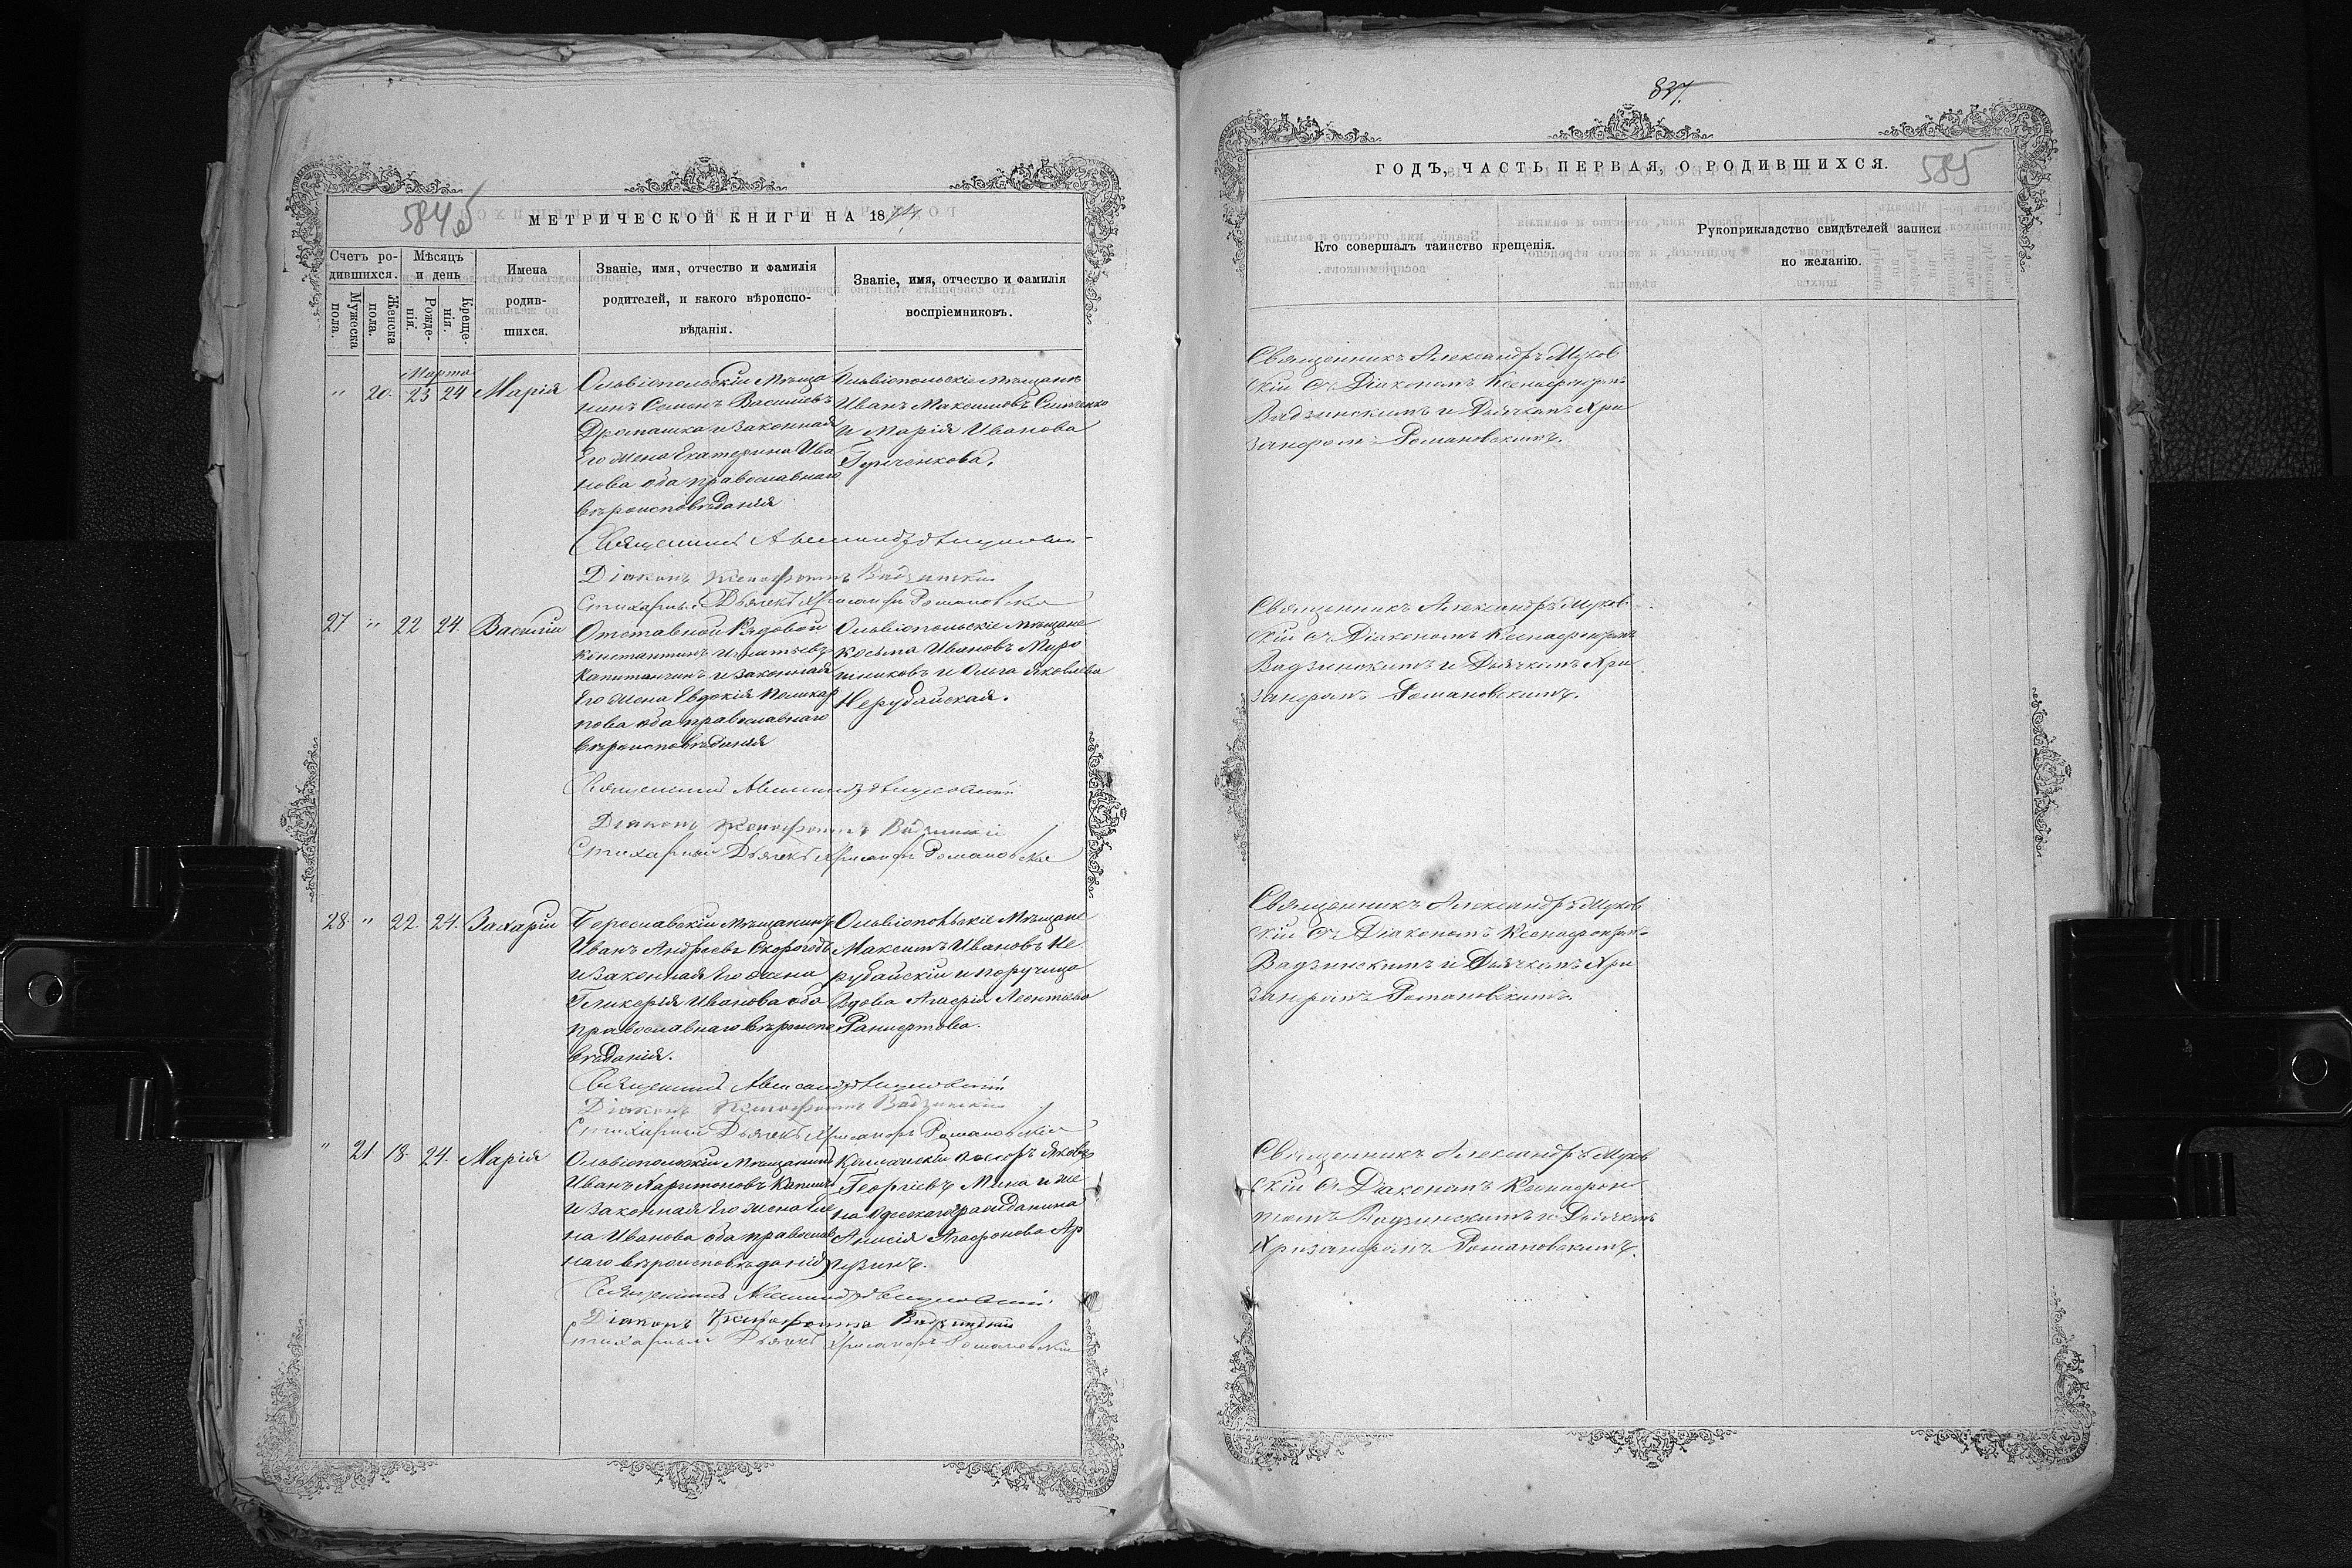 584 об
МЕТРИЧЕСКОЙ КНИГИ НА 1874
Счетъ ро-
дившихся.
Мужеска
пола.
Женска
пола.
Мѣсяцъ
и день
Рожде-
нія.
Креще-
нія.
Имена
родив-
шихся.
Званіе, имя, отчество и фамилія
родителей, и какого вѣроиспо-
вѣданія.
Званіе, имя, отчество и фамилія
воспріемниковъ.
Марта
" 20. 23 24 Марія
Ольвіопольскій Мѣща
нинъ Семенъ Васильевъ
и законная
Его жена Екатерина Ива
нова оба православнаго
вѣроисповѣданія
Ольвіопольскіе мѣщане
Иванъ Максимовъ
и Марія Иванова
Священникъ Александръ
Діаконъ Ксенофонтъ Вадзинскій
Стихарный Дьячекъ Хрисанфъ Романовскій
27 " 22 24. Василій
Отставной Рядовой
Константинъ Игнатьевъ
и законная
Его жена Евдокія Поликар
пова оба православнаго
вѣроисповѣданія
Ольвіопольскіе мѣщане
Косьма Ивановъ Миро
шниковъ и Ольга Яковлева
Нерубайская.
Священникъ Александръ
Діаконъ Ксенофонтъ Вадзинскій
Стихарный Дьячекъ Хрисанфъ Романовскій
28. " 22. 24. Захарій
Бериславскій мѣщанинъ
Иванъ Андреевъ Скороходъ
и Законная Его жена
Гликерія Иванова оба
православнаго вѣроиспо
вѣданія.
Ольвіопольскіе Мѣщане
Максимъ Ивановъ Не
рубайскій и поручица
Вдова Агафія Леонтьева
Священникъ Александръ
Діаконъ Ксенофонтъ Вадзинскій
Стихарный Дьячекъ Хрисанфъ Романовскій
" 21 18. 24. Марія
Ольвіопольскій Мѣщанинъ
Иванъ Харитоновъ
и Законная Его жена Еле
на Иванова оба православ
наго вѣроисповѣданія
Яковъ
Георгіевъ Мина и же
на Одесскаго гражданина
Анисія Агафонова
Священникъ Александръ
Діаконъ Ксенофонтъ Вадзинскій
Стихарный Дьячекъ Хрисанфъ Романовскій
837.
ГОДЪ, ЧАСТЬ ПЕРВАЯ, О РОДИВШИХСЯ.
585
Кто совершалъ таинство крещенія.
Рукоприкладство свидѣтелей записи
по желанію.
Священникъ Александръ Муков
скій съ Діакономъ Ксенофонтомъ
Вадзинскимъ и Дьячкомъ Хри
занфомъ Романовскимъ.
Священникъ Александръ Муков
скій съ Діакономъ Ксенофонтомъ
Вадзинскимъ и Дьячкомъ Хри
занфомъ Романовскимъ.
Священникъ Александръ Муков
скій съ Діакономъ Ксенофонтомъ
Вадзинскимъ и Дьячкомъ Хри
занфомъ Романовскимъ.
Священникъ Александръ Муков
скій съ Діакономъ Ксенофон
томъ Вадзинскимъ и Дьячкомъ
Хризанфомъ Романовскимъ.